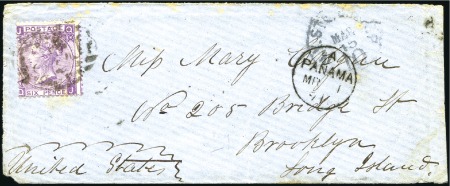 POSTAGE
SIX PENCE
A
PANAMA
MR 1
Miss Mary
No 205 Bridge St
Brooklyn
United States
Long Island.